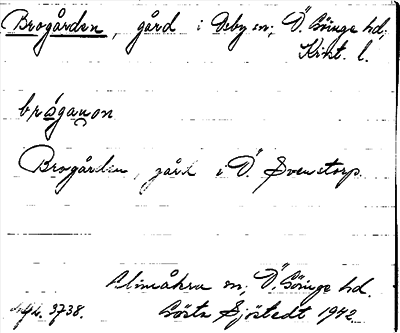 Brogården, gård i Deby sn; Ö. Göinge hd;
Krist. l.
brǿganon
Brogården, gård i Ö. Svenstorp.
Almåkra sn, Ö. Göinge hd.
3738. Gösta Sjöstedt 1942.